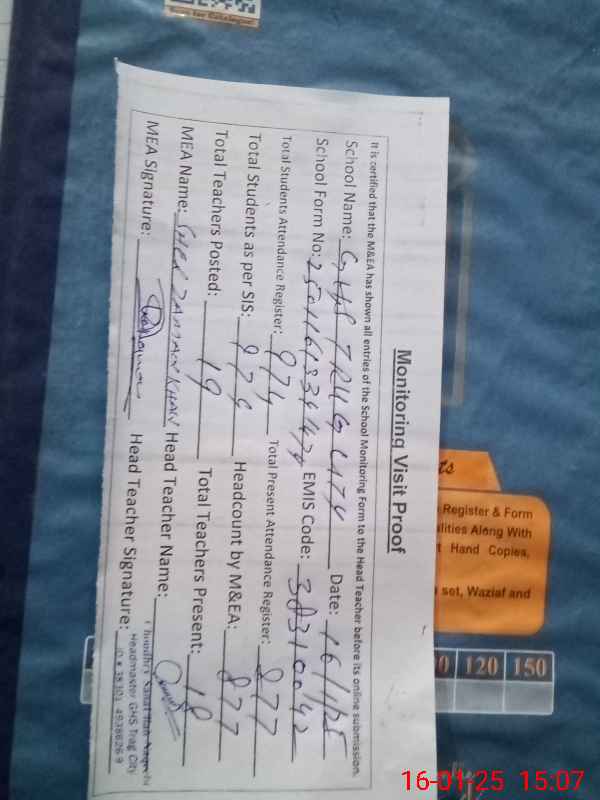 Scan for Catalogue
Monitoring Visit Proof
It is certified that the M&EA has shown all entries of the School Monitoring Form to the Head Teacher before its online submission.
School Name: GHS TRUG CITY Date: 16/1/25
School Form No: EMIS Code: 38310042
Total Students Attendance Register: 974 Total Present Attendance Register: 877
Total Students as per SIS: 974 Headcount by M&EA: 877
Total Teachers Posted: 19 Total Teachers Present: 18
MEA Name: SHER ZAMMAN KHAN Head Teacher Name:
MEA Signature: Head Teacher Signature:
Headmaster GHS Trag City
ts
Register & Form
ilities Along With
t Hand Copies,
set, Waziaf and
0 120 150
16-01-25 15:07